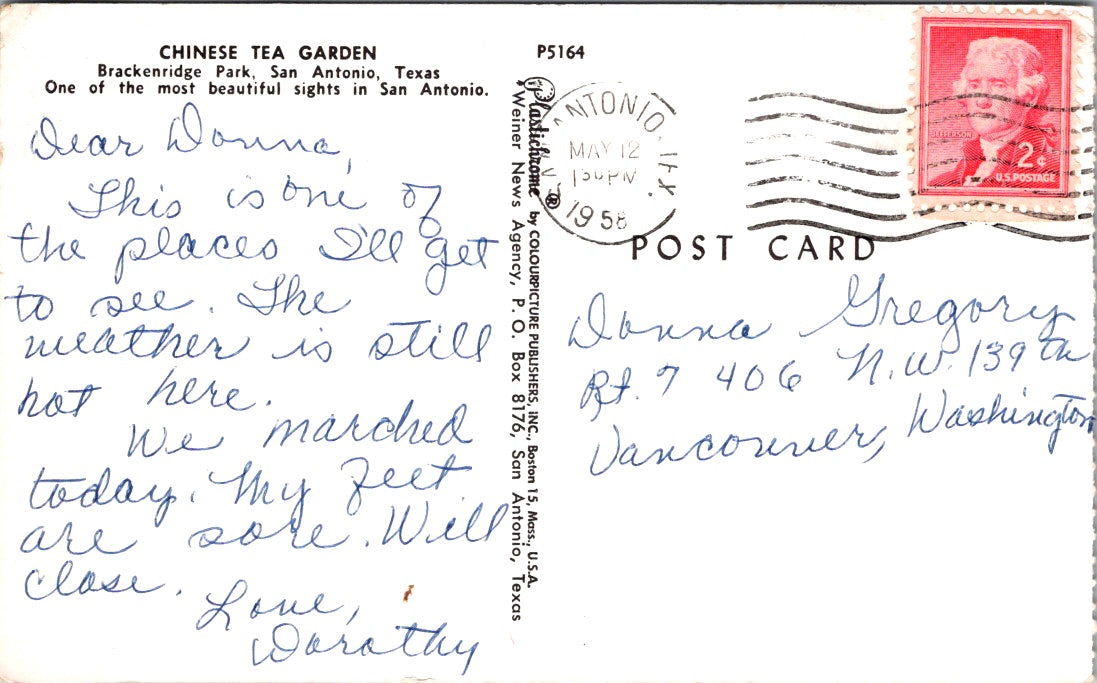 CHINESE TEA GARDEN
Brackenridge Park, San Antonio, Texas
One of the most beautiful sights in San Antonio.
Dear Donna,
This is one of
the places I'll get
to see. The
weather is still
hot here.
We marched
today. My feet
are sore. Will
close.
Love,
Dorothy
P5164
Plastichrome ® by COLOURPICTURE PUBLISHERS, INC., Boston 15, Mass., U.S.A.
Weiner News Agency, P. O. Box 8176, San Antonio, Texas
ANTONIO, TEX.
MAY 12
1 30 PM
1958
JEFFERSON
2¢
U.S. POSTAGE
POST CARD
Donna Gregory
Rt. 7 406 N.W. 139th
Vancouver, Washington